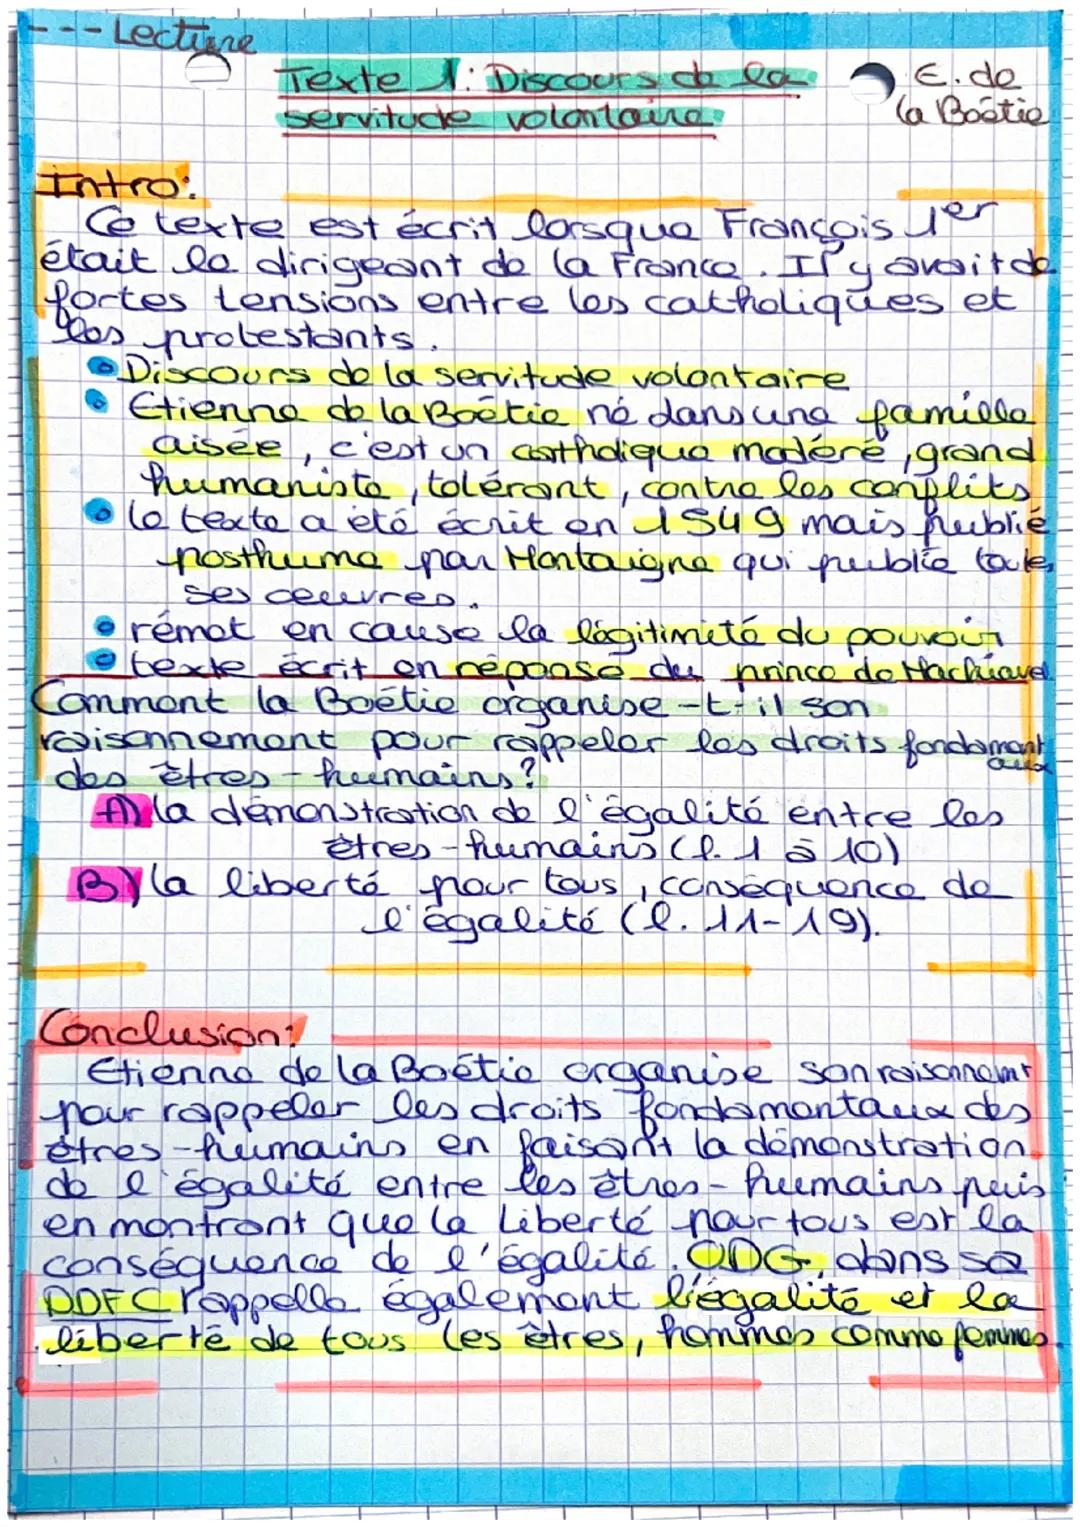 --- Lecture
Texte 1: Discours de la
servitude volontaire
E. de
la Boétie
Intro:
Ce texte est écrit lorsque François 1er
était le dirigeant de la France. Il y avait de
fortes tensions entre les catholiques et
les protestants.
Discours de la servitude volontaire
Etienne de la Boétie né dans une famille
aisée, c'est un catholique modéré, grand
humaniste, tolérant, contre les conflits
le texte a été écrit en 1549 mais publié
posthume par Montaigne qui publie toute
ses oeuvres.
rémet en cause la légitimité du pouvoir
texte écrit en réponse du prince de Machiavel
Comment la Boétie organise-t-il son
raisonnement pour rappeler les droits fondamentaux
des êtres-humains?
A) la démonstration de l'égalité entre les
êtres-humains (l. 1 à 10)
B) la liberté pour tous, conséquence de
l'égalité (l. 11-19).
Conclusion:
Etienne de la Boétie organise son raisonnement
pour rappeler les droits fondamentaux des
êtres-humains en faisant la démonstration
de l'égalité entre les êtres-humains puis
en montrant que la liberté pour tous est la
conséquence de l'égalité. ODG, dans sa
DDFC rappelle également l'égalité et la
liberté de tous les êtres, hommes comme femmes.